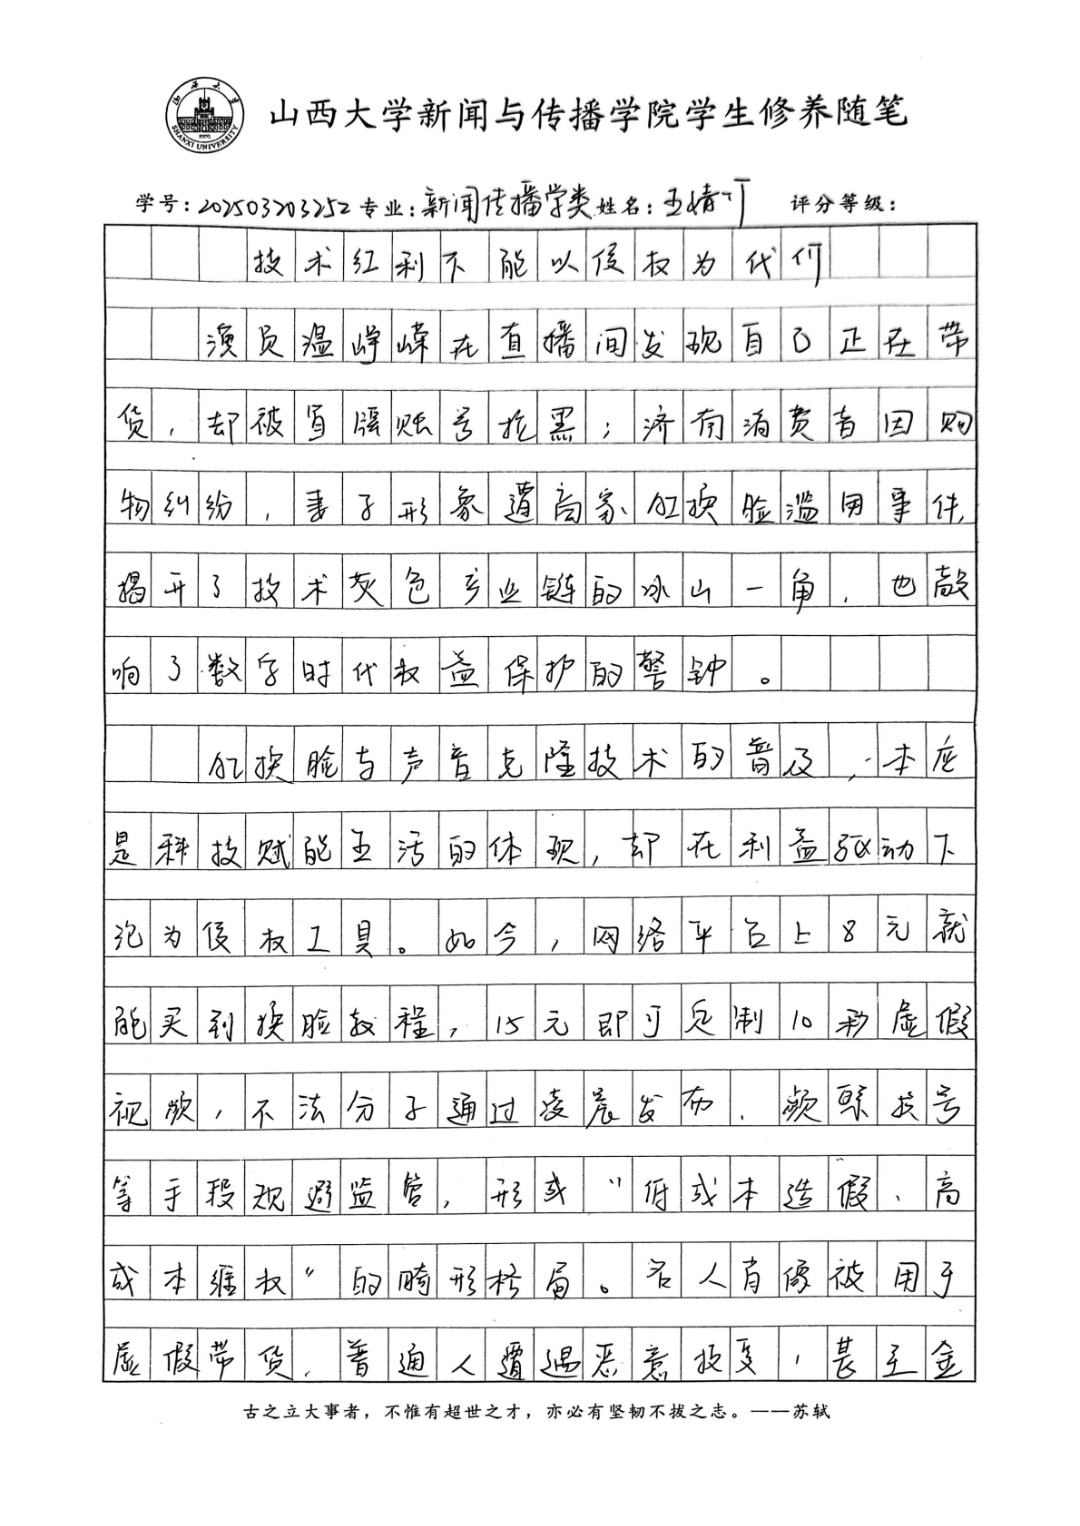 山西大学
SHANXI UNIVERSITY
山西大学新闻与传播学院学生修养随笔
学号：202503203252 专业：新闻传播学类 姓名：王婧可 评分等级：
技术红利不能以侵权为代价
演员温峥嵘在直播间发现自己正在带
货，却被冒牌账号拉黑；济南消费者因购
物纠纷，妻子形象遭商家AI换脸滥用事件，
揭开了技术灰色产业链的冰山一角，也敲
响了数字时代权益保护的警钟。
AI换脸与声音克隆技术的普及，本应
是科技赋能生活的体现，却在利益驱动下
沦为侵权工具。如今，网络平台上8元就
能买到换脸教程，15元即可定制10秒虚假
视频，不法分子通过凌晨发布、频繁换号
等手段规避监管，形成“低成本造假、高
成本维权”的畸形格局。名人肖像被用于
虚假带货，普通人遭遇恶意换脸，甚至金
古之立大事者，不惟有超世之才，亦必有坚韧不拔之志。——苏轼